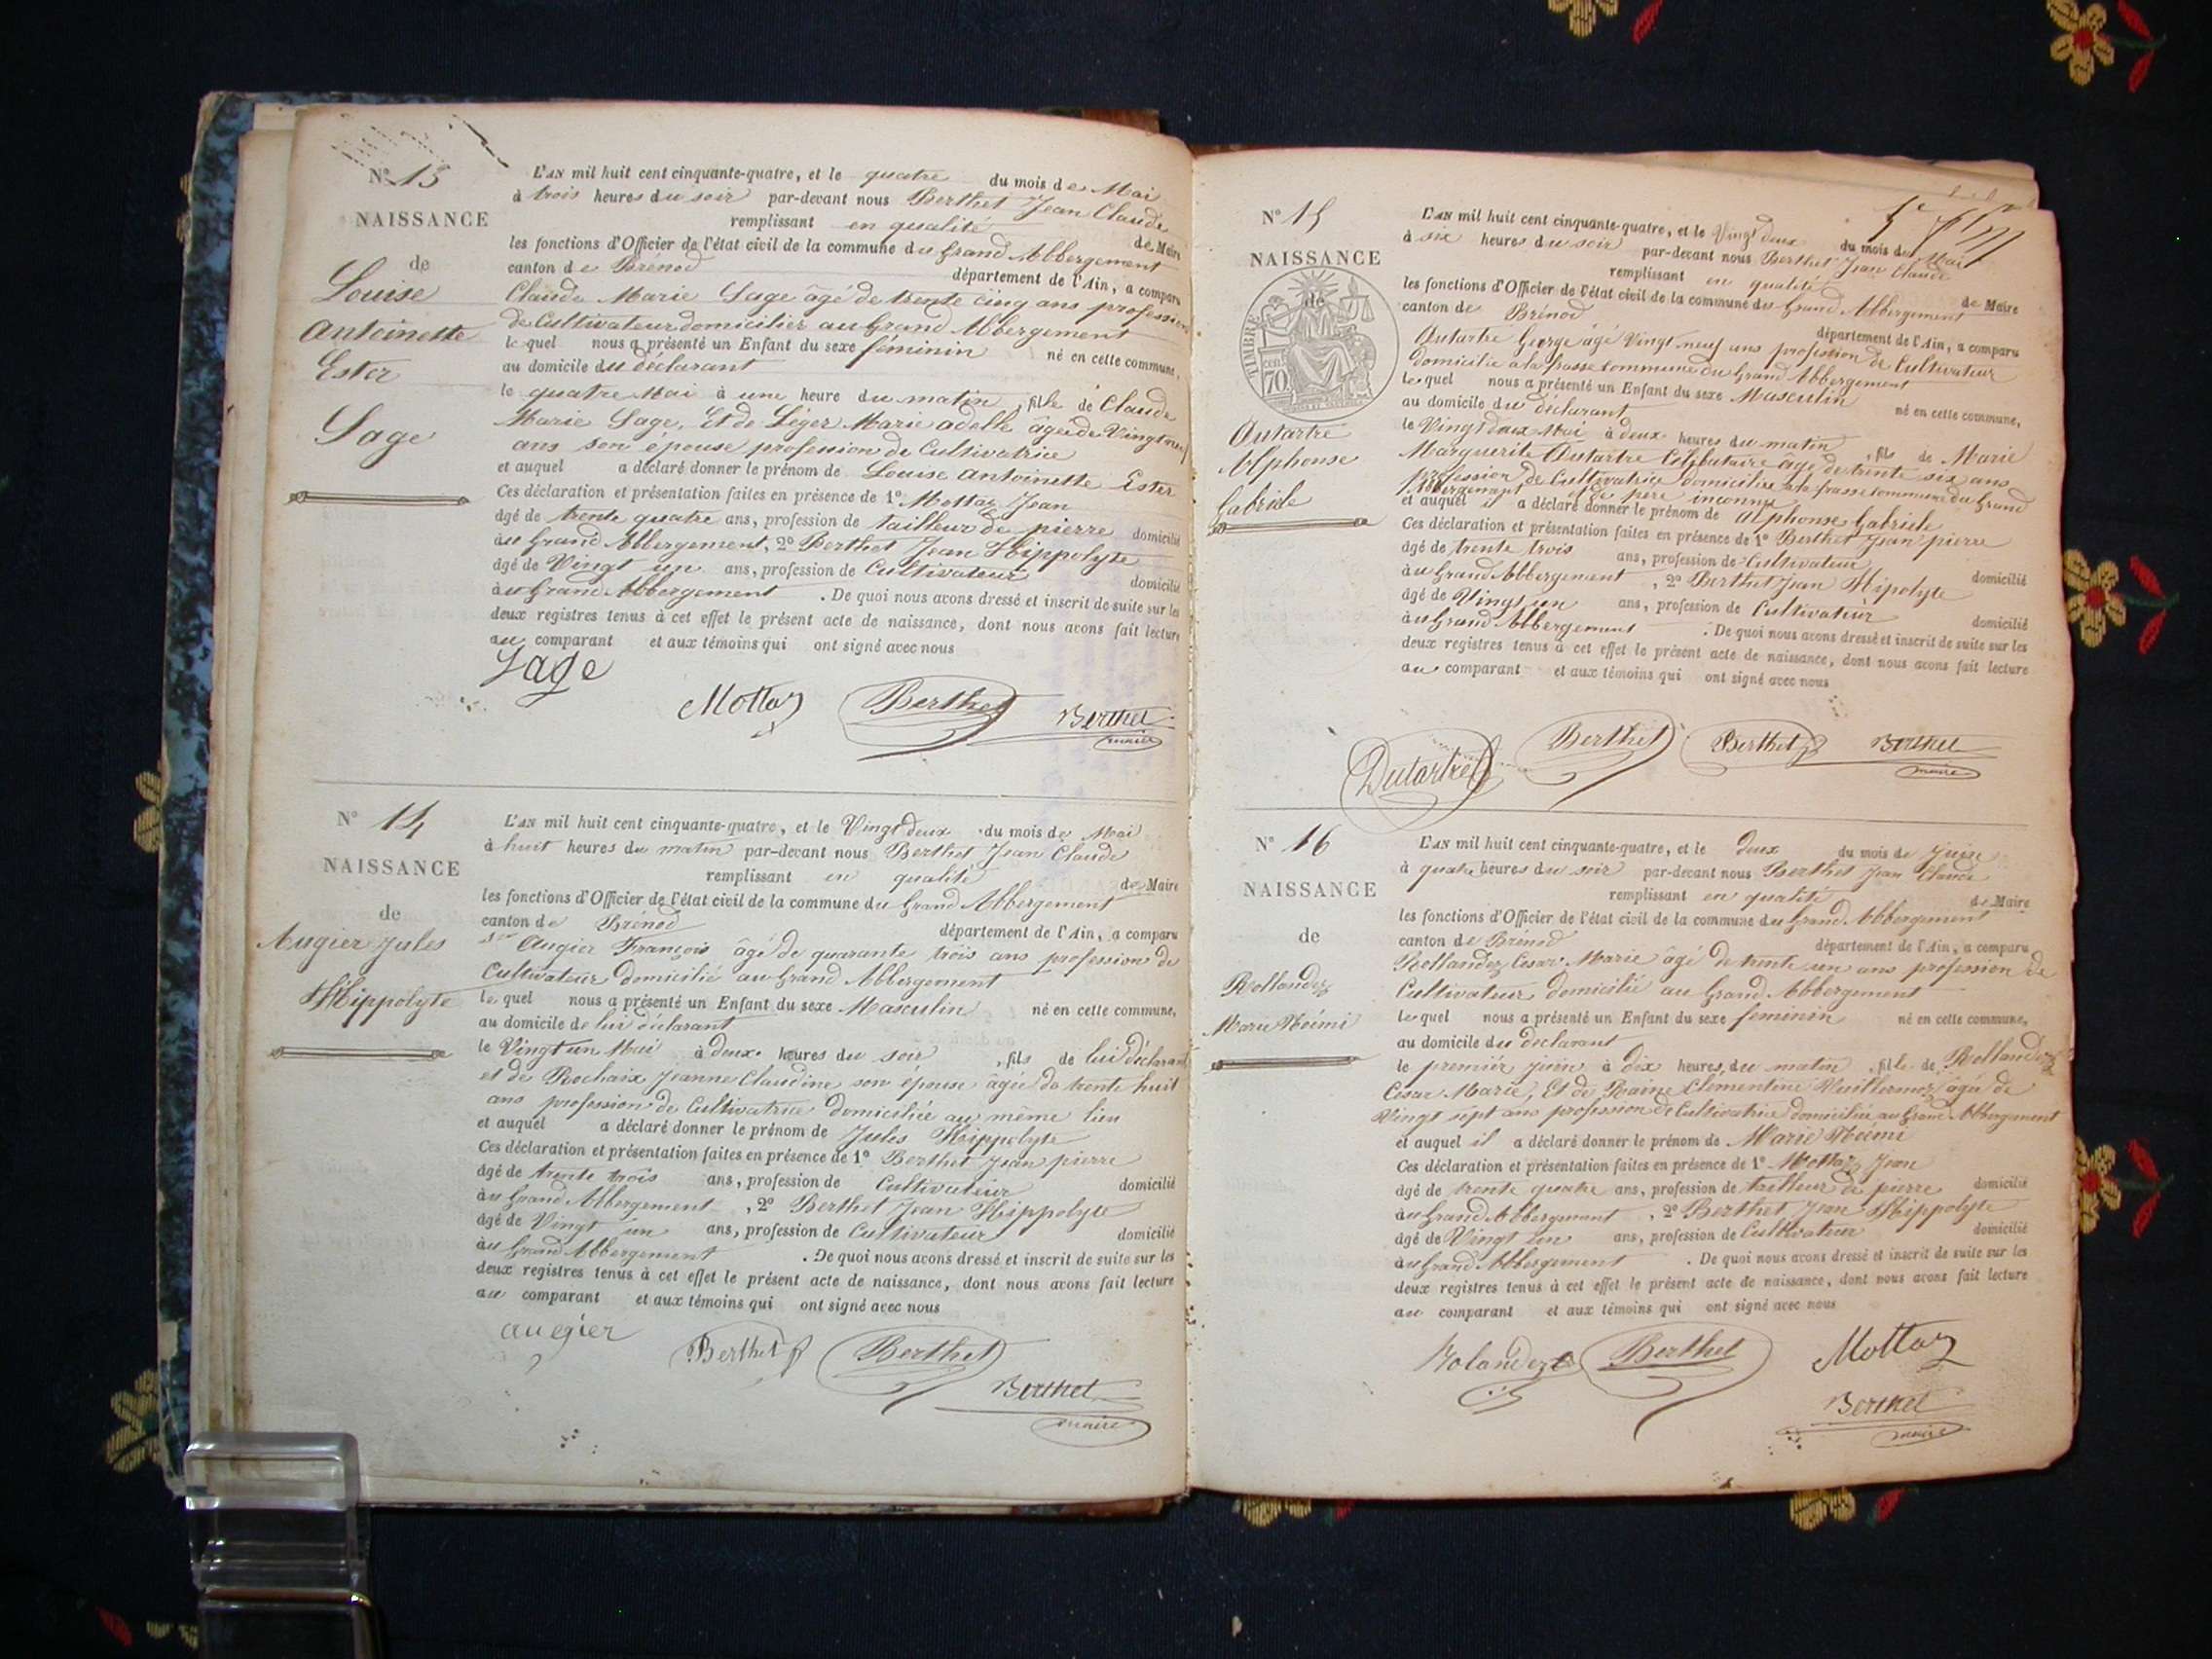 N° 13
NAISSANCE
de
Louise
Antoinette
Ester
Sage
L'AN mil huit cent cinquante-quatre, et le quatre du mois de Mai
à trois heures du soir par-devant nous Berthet Jean Claude
remplissant en qualité de Maire
les fonctions d'Officier de l'état civil de la commune du Grand Abbergement
canton de Brénod département de l'Ain, a comparu
Claude Marie Sage âgé de trente cinq ans profession
de Cultivateur domicilier au Grand Abbergement
lequel nous a présenté un Enfant du sexe féminin né en cette commune,
au domicile du déclarant
le quatre Mai à une heure du matin, fille de Claude
Marie Sage, Et de Léger Marie adelle âgée de Vingt neuf
ans son épouse profession de Cultivatrice
et auquel a déclaré donner le prénom de Louise Antoinette Ester
Ces déclaration et présentation faites en présence de 1° Mottaz Jean
âgé de trente quatre ans, profession de tailleur de pierre domicilié
au Grand Abbergement, 2° Berthet Jean Hippolyte
âgé de Vingt un ans, profession de Cultivateur domicilié
au Grand Abbergement . De quoi nous avons dressé et inscrit de suite sur les
deux registres tenus à cet effet le présent acte de naissance, dont nous avons fait lecture
au comparant et aux témoins qui ont signé avec nous
Sage
Mottaz Berthet Berthet
maire
N° 14
NAISSANCE
de
Augier Jules
Hippolyte
L'AN mil huit cent cinquante-quatre, et le Vingt deux du mois de Mai
à huit heures du matin par-devant nous Berthet Jean Claude
remplissant en qualité de Maire
les fonctions d'Officier de l'état civil de la commune du Grand Abbergement
canton de Brénod département de l'Ain, a comparu
Sr Augier François âgé de quarante trois ans profession de
Cultivateur domicilié au Grand Abbergement
lequel nous a présenté un Enfant du sexe Masculin né en cette commune,
au domicile de lui déclarant
le Vingt un Mai à deux heures du soir, fils de lui déclarant
et de Rochaix Jeanne Claudine son épouse âgée de trente huit
ans profession de Cultivatrice domiciliée au même lieu
et auquel a déclaré donner le prénom de Jules Hippolyte
Ces déclaration et présentation faites en présence de 1° Berthet Jean pierre
âgé de trente trois ans, profession de Cultivateur domicilié
au Grand Abbergement, 2° Berthet Jean Hippolyte
âgé de Vingt un ans, profession de Cultivateur domicilié
au Grand Abbergement . De quoi nous avons dressé et inscrit de suite sur les
deux registres tenus à cet effet le présent acte de naissance, dont nous avons fait lecture
au comparant et aux témoins qui ont signé avec nous
augier Berthet Berthet
Berthet
maire
N° 15
NAISSANCE
de
TIMBRE
70
Dutartre
Alphonse
Gabriele
L'AN mil huit cent cinquante-quatre, et le Vingt deux du mois de Mai
à six heures du soir par-devant nous Berthet Jean Claude
remplissant en qualité de Maire
les fonctions d'Officier de l'état civil de la commune du Grand Abbergement
canton de Brénod département de l'Ain, a comparu
Dutartre George âgé Vingt neuf ans profession de Cultivateur
domicilié a la frasse commune du Grand Abbergement
lequel nous a présenté un Enfant du sexe Masculin né en cette commune,
au domicile du déclarant
le Vingt deux Mai à deux heures du matin, fils de Marie
Marguerite Dutartre Célibataire âgé de trente six ans
profession de Cultivatrice domiciliée a la frasse commune du Grand
Abbergement et de père inconnu
et auquel il a déclaré donner le prénom de Alphonse Gabriele
Ces déclaration et présentation faites en présence de 1° Berthet Jean pierre
âgé de trente trois ans, profession de Cultivateur
au Grand Abbergement, 2° Berthet Jean Hipolyte domicilié
âgé de Vingt un ans, profession de Cultivateur
au Grand Abbergement domicilié
. De quoi nous avons dressé et inscrit de suite sur les
deux registres tenus à cet effet le présent acte de naissance, dont nous avons fait lecture
au comparant et aux témoins qui ont signé avec nous
Dutartre Berthet Berthet Berthet
maire
N° 16
NAISSANCE
de
Rollandez
Marie Noémi
L'AN mil huit cent cinquante-quatre, et le deux du mois de Juin
à quatre heures du soir par-devant nous Berthet Jean Claude
remplissant en qualité de Maire
les fonctions d'Officier de l'état civil de la commune du Grand Abbergement
canton de Brénod département de l'Ain, a comparu
Rollandez Cesar Marie âgé de trente un ans profession de
Cultivateur domicilié au Grand Abbergement
lequel nous a présenté un Enfant du sexe feminin né en cette commune,
au domicile du declarant
le premier juin à dix heures du matin, fille de Rollandez
Cesar Marie, Et de Raine Clementine Vuillermoz âgée de
Vingt sept ans profession de Cultivatrice domiciliée au Grand Abbergement
et auquel il a déclaré donner le prénom de Marie Noémi
Ces déclaration et présentation faites en présence de 1° Mottaz Jean
âgé de trente quatre ans, profession de tailleur de pierre domicilié
au Grand Abbergement, 2° Berthet Jean Hippolyte
âgé de Vingt un ans, profession de Cultivateur domicilié
au Grand Abbergement . De quoi nous avons dressé et inscrit de suite sur les
deux registres tenus à cet effet le présent acte de naissance, dont nous avons fait lecture
au comparant et aux témoins qui ont signé avec nous
Rolandez Berthet Mottaz
Berthet
maire